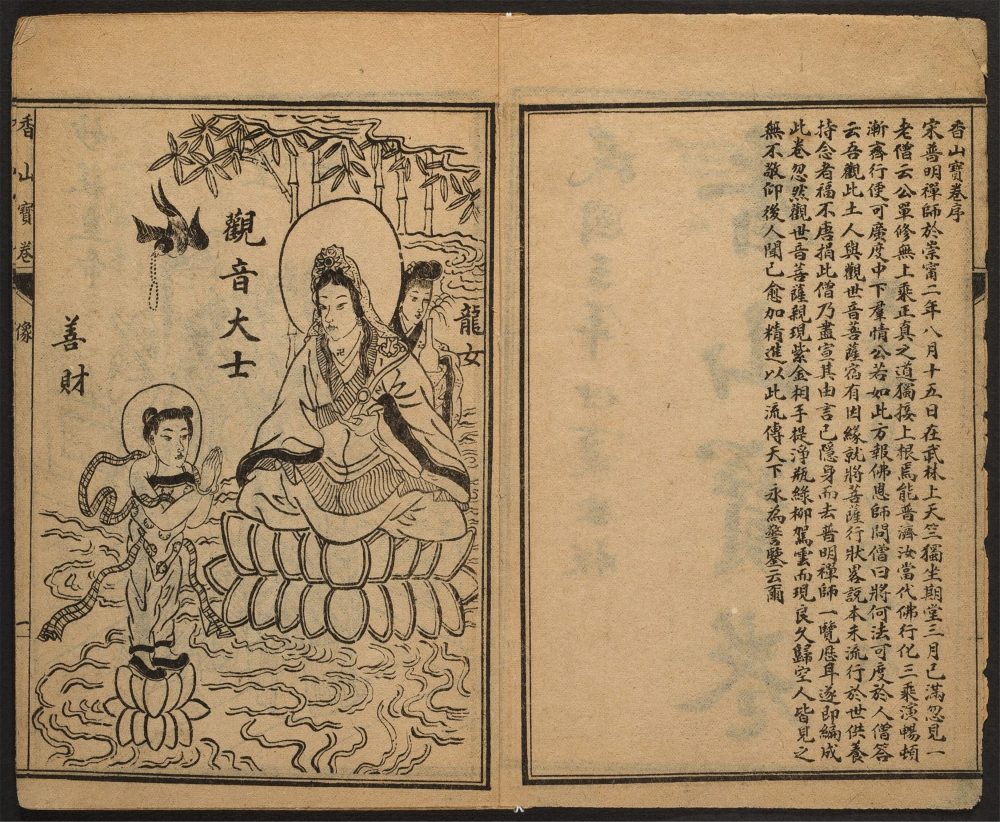 香山寶卷序
宋普明禪師於崇甯二年八月十五日在武林上天竺獨坐期堂三月已滿忽見一
老僧云公單修無上乘正真之道獨接上根焉能普濟汝當代佛行化三乘演暢頓
漸齊行便可廣度中下羣情公若如此方報佛恩師問僧曰將何法可度於人僧答
云吾觀此土人與觀世音菩薩宿有因緣就將菩薩行狀畧説本末流行於世供養
持念者福不唐捐此僧乃盡宣其由言已隱身而去普明禪師一覽歷耳遂即編成
此卷忽然觀世音菩薩親現紫金相手提淨瓶綠柳駕雲而現良久歸空人皆見之
無不敬仰後人聞已愈加精進以此流傳天下永為警鑒云爾
龍女
觀音大士
善財
香山寶卷 像 一